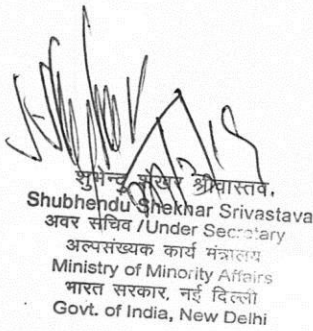 शुभेन्दु शेखर श्रीवास्तव,
Shubhendu Shekhar Srivastava
अवर सचिव /Under Secretary
अल्पसंख्यक कार्य मंत्रालय
Ministry of Minority Affairs
भारत सरकार, नई दिल्ली
Govt. of India, New Delhi